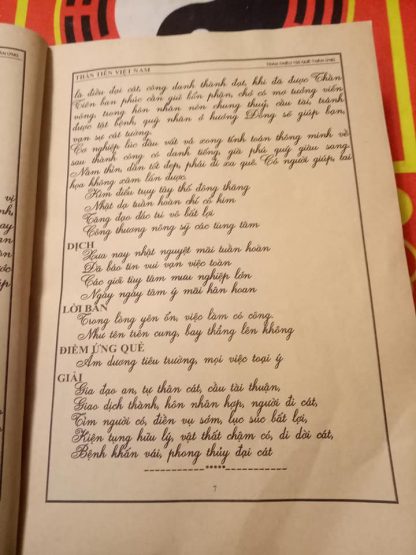 THẦN TIÊN VIỆT NAM
là điều đại cát, công danh thành đạt, khi đã được Thần
Tiên ban phúc cần giữ bổn phận, chớ có mơ tưởng viễn
vông, trung hôn nhân nên chung thuỷ, cầu tài, tránh
được tật bệnh, quý nhân ở hướng Đông sẽ giúp bạn,
vạn sự cát tường.
Cơ nghiệp lúc đầu vất vả xong tính toán thông minh về
sau thành công có danh tiếng, già phú quý giàu sang.
Năm thìn, dần tốt đẹp, phải đi xa quê. Có người giúp, tai
họa không xâm lấn được.
Kim điểu tụy tây thố đông thăng
Nhật dạ tuần hoàn chí cổ kim
Tăng đạo đắc tui vô bất lợi
Công thương nông sỹ các tùng tâm
DỊCH
Xưa nay nhật nguyệt mãi tuần hoàn
Đã báo tin vui vạn việc toàn
Các giới tùy tâm mưu nghiệp lớn
Ngày ngày tâm ý mãi hân hoan
LỜI BÀN
Trong lòng yên ổn, việc làm có công.
Như tên trên cung, bay thẳng lên không
ĐIỀM ỨNG QUẺ
Âm dương tiêu trưởng, mọi việc toại ý
GIẢI
Gia đạo an, tự thân cát, cầu tài thuận,
Giao dịch thành, hôn nhân hợp, người đi cát,
Tìm người có, điền vụ sớm, lục súc bất lợi,
Kiện tụng hữu lý, vật thất chậm có, di dời cát,
Bệnh khấn vái, phong thủy đại cát
------------*****------------
7